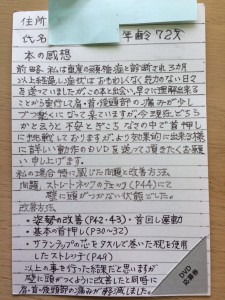 住所
氏名 年齢 72才
本の感想
前略 私は重度の頚椎症と診断され3カ月
以上経過し症状はおもわしくなく気力のない日々
を送っていましたが、この本と出会い、早々に理解出来る
ことから実行して肩・首・後頭部の痛みが少し
づつ軽くなって来ていますが、今現在どちら
かと云うと不安とぎこちなさの中で首押し
に挑戦しておりますがより効果的に出来る様
に詳しい動作のDVDを送って頂きたくお願
い申し上げます。
私の場合 特に感じた問題と改善方法
問題、ストレートネックのチェック(P44)にて
壁に頭がつかない状態でした。
改善方法
・姿勢の改善(P42・43)・首回し運動
・基本の首押し(P30~32)
・サランラップの芯をタオルで巻いた枕を使用
したストレッチ(P49)
以上の事を行った結果だと思いますが
壁に頭がつくように改善したと同時に
肩・首・後頭部の痛みが軽減しました。
DVD
応募券